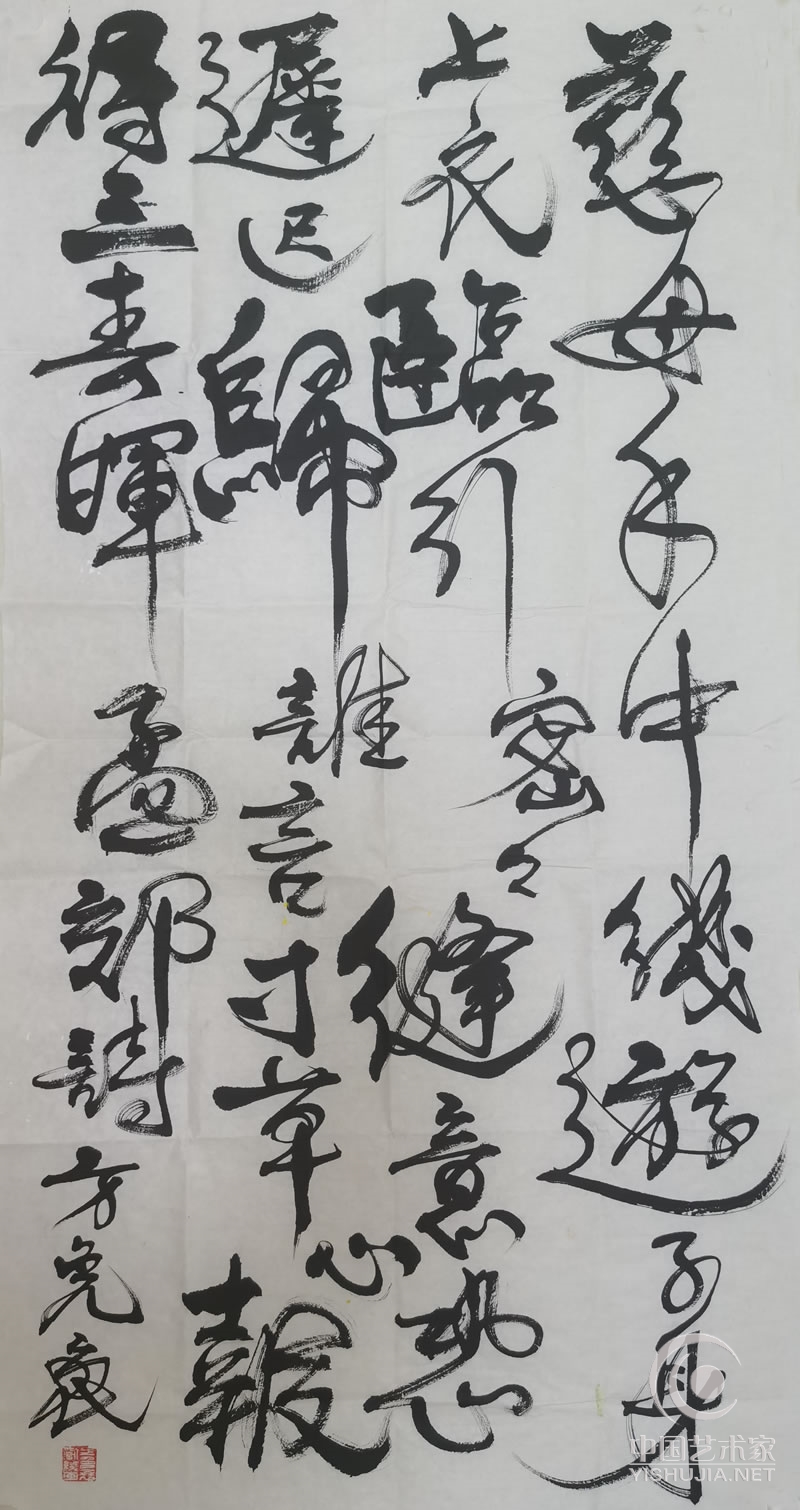 慈母手中綫遊子身
上衣臨行密々縫意恐
遲迟歸誰言寸草心報
得三春暉孟郊詩方
中国艺术家
YISHUJIA.NET